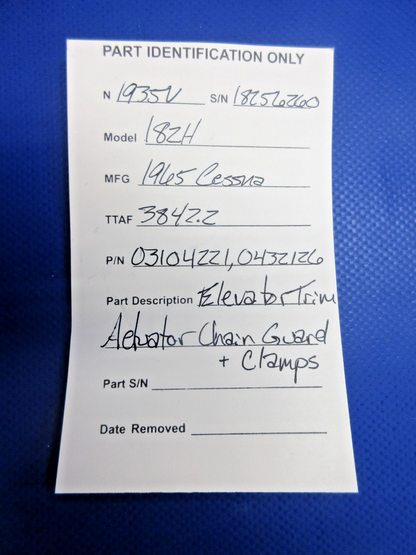 PART IDENTIFICATION ONLY
N 1935V S/N 18256260
Model 182H
MFG 1965 Cessna
TTAF 3842.2
P/N 03104221, 0432126
Part Description Elevator Trim
Actuator Chain Guard
+ Clamps
Part S/N
Date Removed